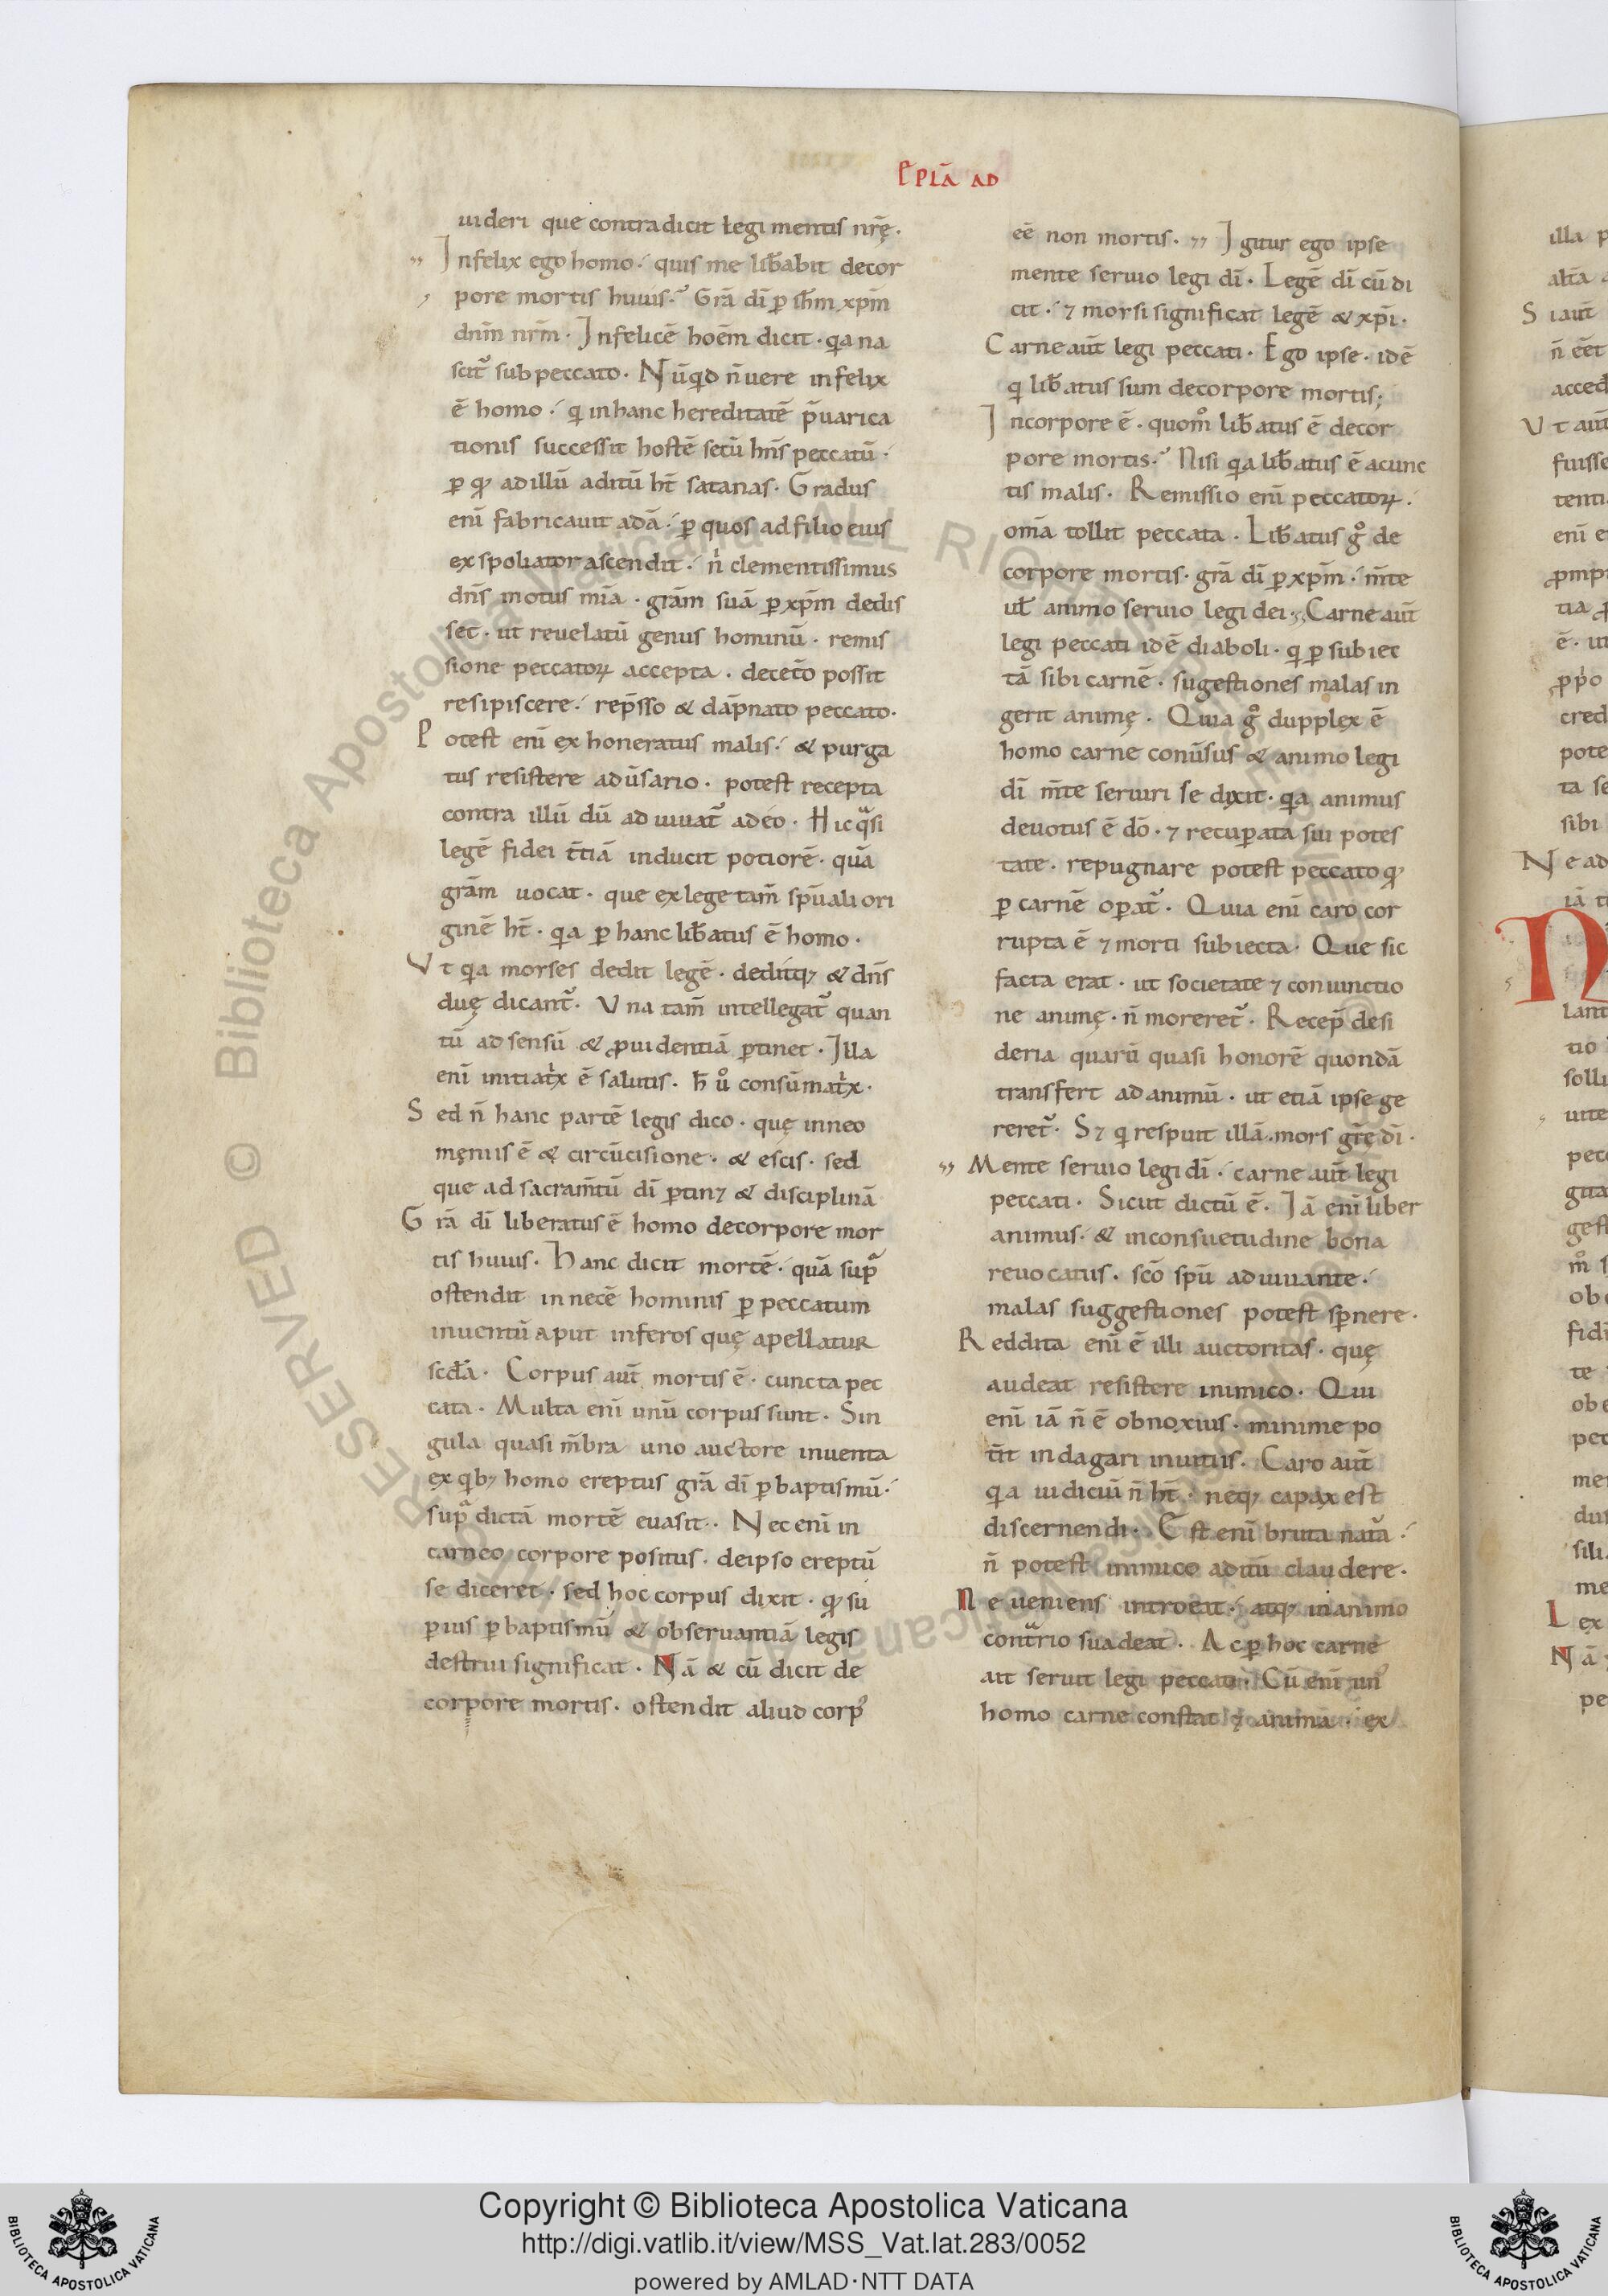 EPLA AD
uideri que contradicit legi mentis nrę̄.
Infelix ego homo. quis me lib̄abit decor
pore mortis huius. Grā dī p ih̄m xp̄m
dn̄m nr̄m. Infelicē hoēm dicit. qa na
scit᷑ sub peccato. Nūqd n̄ uere infelix
ē homo. q in hanc hereditatē p̄uarica
tionis successit hostē secū hn̄s peccatū.
p qꝫ ad illū aditū ht̄ satanas. Gradus
enī fabricauit adā. p quos ad filio eius
exspoliator ascendit. n clementissimus
dn̄s motus mīa. grām suā p xp̄m dedis
set. ut reuelatū genus hominū. remis
sione peccatoꝝ accepta. decet̄o possit
resipiscere. rep̄sso & dāpnato peccato.
Potest enī exhoneratus malis. & purga
tus resistere adūsario. potest recepta
contra illū dū adiuuat᷑ adeo. Hic qͣsi
legē fidei t̄tiā inducit potiorē. quā
grām uocat. que ex lege tam̄ sp̄uali ori
ginē ht̄. qa p hanc lib̄atus ē homo.
Vt qa morses dedit legē. deditqꝫ & dn̄s
duę dicant᷑. Vna tam̄ intellegat᷑ quan
tū ad sensū & ꝓuidentiā ptinet. Illa
enī initiatͥx ē salutis. h̄ uͦ consūmatͥx.
Sed n̄ hanc partē legis dico. quę inneo
męniis ē & circūcisione. & escis. sed
que ad sacram̄tū dī ptinꝫ & disciplinā
Grā dī liberatus ē homo decorpore mor
tis huius. Hanc dicit mortē. quā supͣ
ostendit in necē hominis p peccatum
inuentū aput inferos quę apellatur
scd̄a. Corpus aut̄ mortis ē. cuncta pec
cata. Multa enī unū corpus sunt. Sin
gula quasi m̄bra uno auctore inuenta
ex qbꝫ homo ereptus grā dī p baptismū.
supͣ dictā mortē euasit. Nec enī in
carneo corpore positus. de ipso ereptū
se diceret. sed hoc corpus dixit. qꝫ su
pius p baptismū & obseruantiā legis
destrui significat. Nā & cū dicit de
corpore mortis. ostendit aliud corpꝰ
eē non mortis. Igitur ego ipse
mente seruio legi dī. Legē dī cū di
cit. ⁊ morsi significat legē & xp̄i.
Carne aut̄ legi peccati. Ego ipse. idē
q lib̄atus sum decorpore mortis;
Incorpore ē. quomͦ lib̄atus ē decor
pore mortis. Nisi qa lib̄atus ē acunc
tis malis. Remissio enī peccatoꝝ.
om̄a tollit peccata. Lib̄atus gͦ de
corpore mortis. grā dī p xp̄m. m̄te
ul̄ animo seruio legi dei. Carne aut̄
legi peccati idē diaboli. q p subiec
tā sibi carnē. sugestiones malas in
gerit animę. Quia gͦ dupplex ē
homo carne conūsus & animo legi
dī m̄te seruiri se dixit. qa animus
deuotus ē dō. ⁊ recupata sui potes
tate. repugnare potest peccato qꝫ
p carnē opat᷑. Quia enī caro cor
rupta ē ⁊ morti subiecta. Que sic
facta erat. ut societate ⁊ coniunctio
ne animę. n̄ moreret᷑. Recep̄ desi
deria quarū quasi honorē quondā
transfert ad animū. ut etiā ipse ge
reret᷑. Sꝫ q respuit illā. mors grę̄ dī.
Mente seruio legi dī. carne aut̄ legi
peccati. Sicut dictū ē. Iā enī liber
animus. & inconsuetudine bona
reuocatus. scō spū adiuuante.
malas suggestiones potest spnere.
Reddita enī ē illi auctoritas. quę
audeat resistere inimico. Qui
enī iā n̄ ē obnoxius. minime po
t̄it indagari inuitus. Caro aut̄
qa iudicuī n̄ ht̄. neqꝫ capax est
discernendi. Est enī bruta natūa.
n̄ potest inimico aditū claudere.
Ne ueniens introeat. atqꝫ in animo
contͣrio suadeat. Ac p hoc carne
ait seruit legi peccati. Cū enī unꝰ
homo carne constat ⁊ anima. ex
illa p
S iaut̄
n̄ eēt
acced
V t aut̄
fuisse
tenti
enī e
ꝓmpt
tia ꝓ
ē. ut
cred
pote
ta se
sibi
Ne ad
iā ti
N
lant
tio
solli
uite
pecc
gest
mͦ s
obe
fidī
te
obe
pec
me
dus
sili
me
Lex
Nā
pe
Biblioteca Apostolica Vaticana
ALL RIGHTS RESERVED ©
Copyright © Biblioteca Apostolica Vaticana
http://digi.vatlib.it/view/MSS_Vat.lat.283/0052
powered by AMLAD·NTT DATA
BIBLIOTECA APOSTOLICA VATICANA
BIBLIOTECA APOSTOLICA VATICANA